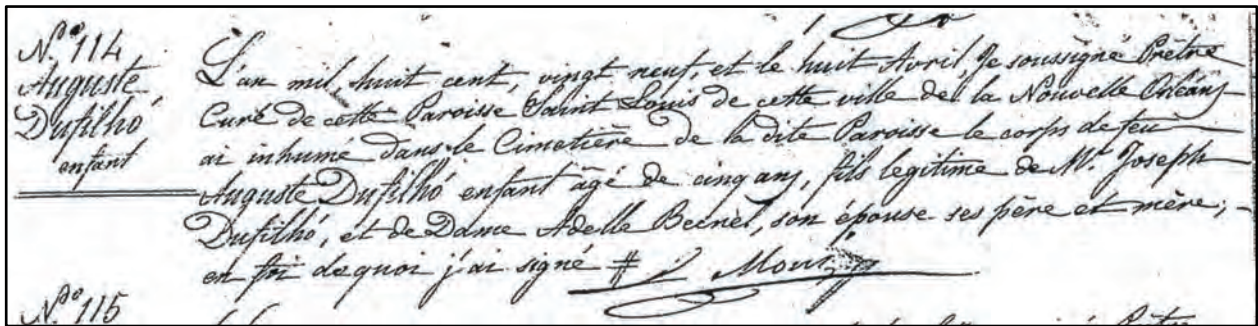 N.º 114
Auguste
Dufilhó
enfant
L'an mil, huit cent, vingt neuf, et le huit Avril, Je soussigné Prêtre
Curé de cette Paroisse Saint Louis de cette ville de la Nouvelle Orléans
ai inhumé dans le Cimetière de la dite Paroisse le corps de feu
Auguste Dufilhó enfant âgé de cinq ans, fils legitime de Mr. Joseph
Dufilhó, et de Dame Adelle Becnel, son épouse ses père et mère;
en foi de quoi j'ai signé #
N.º 115